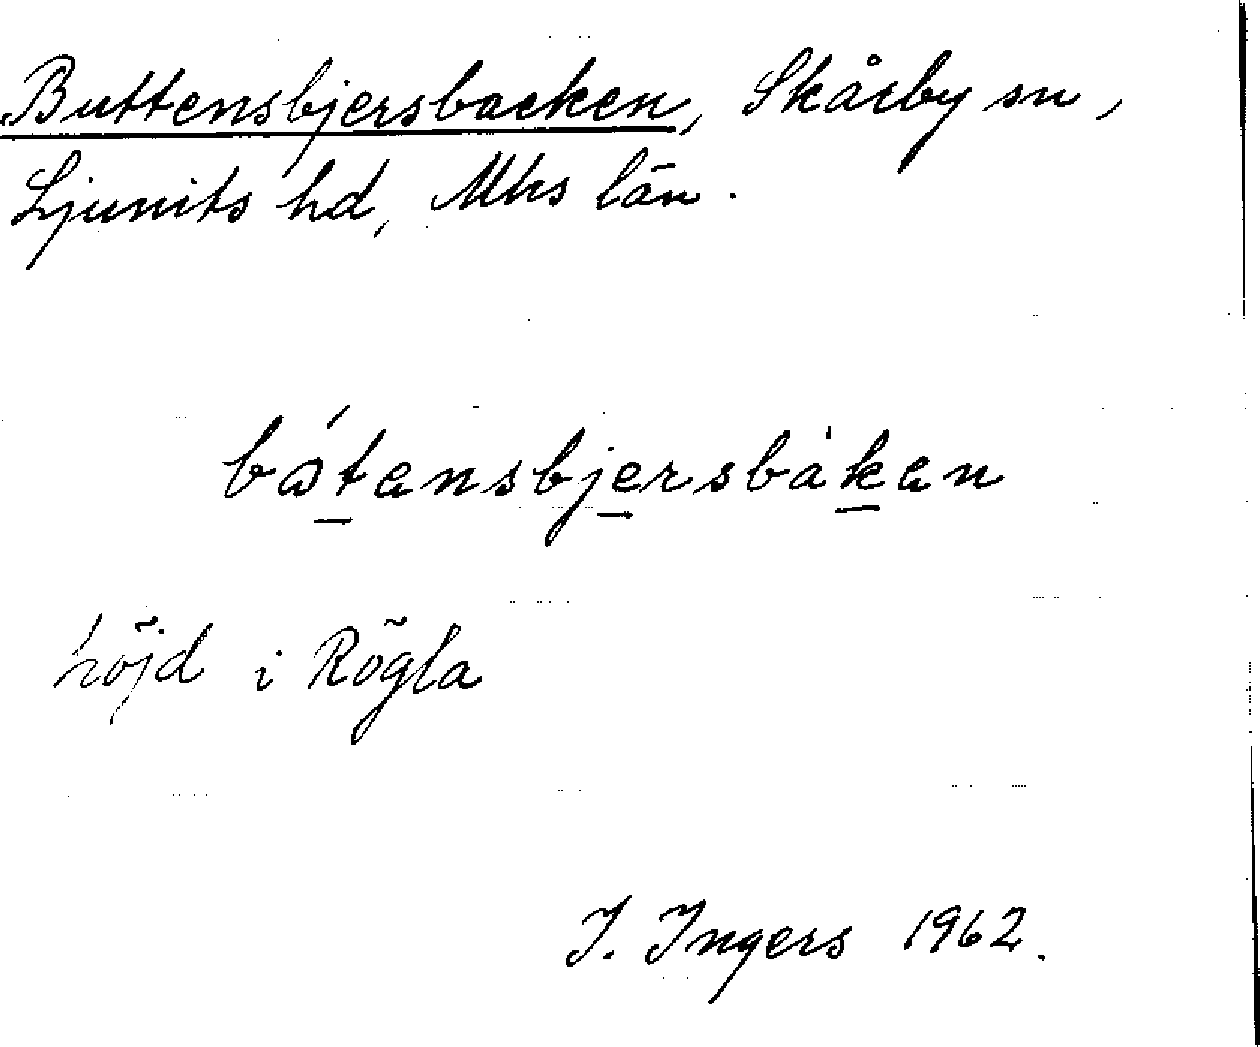 Buttensbjersbacken, Skårby sn,
Ljunits hd, Mhs län.
bótensbjersbàken
höjd i Rögla
I. Ingers 1962.